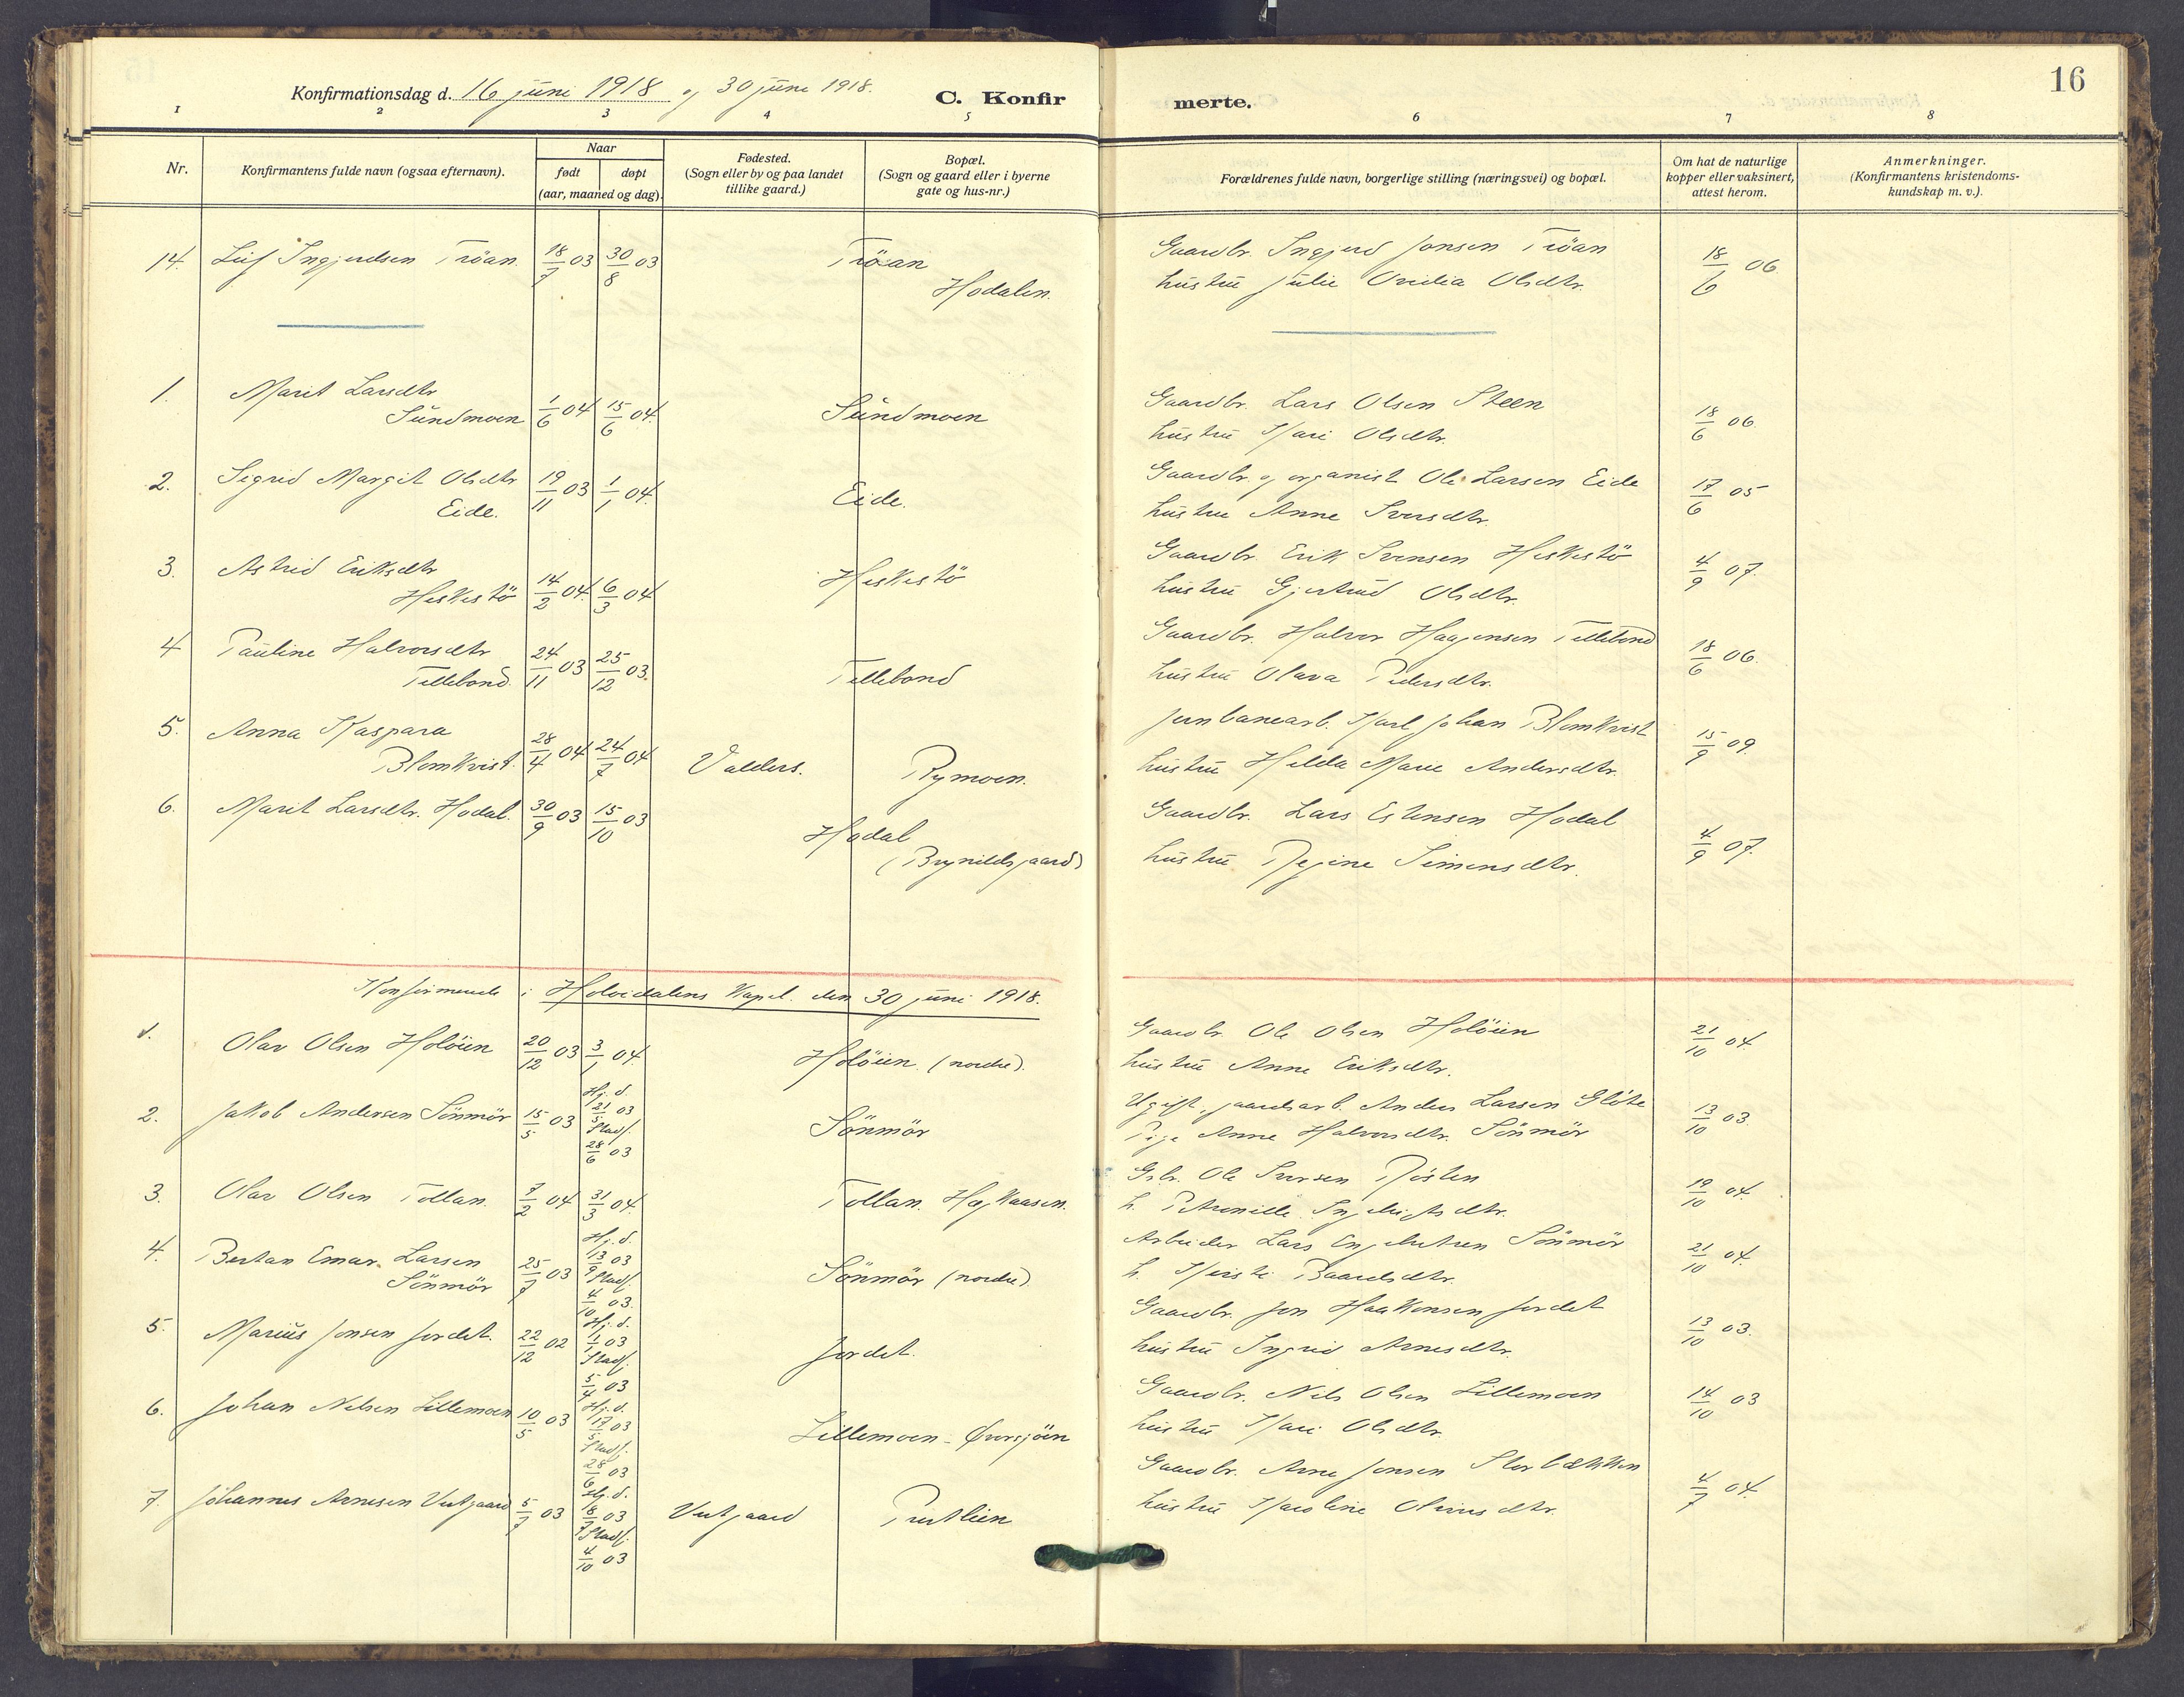 16
Konfirmationsdag d. 16 juni 1918 og 30 juni 1918.
C. Konfir merte.
1 2 3 4 5 6 7 8
Nr.
Konfirmantens fulde navn (ogsaa efternavn).
Naar
født døpt
(aar, maaned og dag)
Fødested.
(Sogn eller by og paa landet
tillike gaard.)
Bopæl.
(Sogn og gaard eller i byerne
gate og hus-nr.)
Forældrenes fulde navn, borgerlige stilling (næringsvei) og bopæl.
Om hat de naturlige
kopper eller vaksinert,
attest herom.
Anmerkninger.
(Konfirmantens kristendoms-
kundskap m. v.).
14. Leif Ingjerdsen Tröan. 18/7 03 30/8 03 Tröan
Hodalen.
Gaardbr. Ingjerd Jonsen Tröan
hustru Julie Ovidia Olsdtr.
18/6 06.
1. Marit Larsdtr
Sundmoen 1/6 04 15/6 04. Sundmoen
Gaardbr. Lars Olsen Steen
hustru Kari Olsdtr.
18/6 06.
2. Sigrid Margit Olsdtr
Eide. 19/11 03 1/1 04. Eide.
Gaardbr. og organist Ole Larsen Eide
hustru Anne Sversdtr.
17/6 05
3. Astrid Eriksdtr
Heskestö 14/2 04. 6/3 04 Heskestö
Gaardbr. Erik Svensen Heskestö
hustru Gjertrud Olsdtr.
4/9 07.
4 Pauline Halvorsdtr
Tellebond. 24/11 03 25/12 03. Tellebond
Gaardbr. Halvor Haagensen Tellebond
hustru Olava Pedersdtr.
18/6 06.
5. Anna Kaspara
Blomkvist. 28/4 04 24/7 04 Valders. Rymoen.
Jernbanearb. Karl Johan Blomkvist
hustru Hilda Marie Andersdtr.
15/9 09.
6. Marit Larsdtr. Hodal. 30/9 03 15/10 03 Hodal
(Brynildsgaard)
Gaardbr. Lars Estensen Hodal
hustru Regine Simensdtr.
4/9 07.
Konfirmerede i Holöidalens Kapel. den 30 juni 1918.
1. Olav Olsen Holöien 20/12 03 3/1 04. Holöien. (nordre).
Gaardbr. Ole Olsen Holöien
hustru Anne Eriksdtr.
21/10 04.
2. Jakob Andersen Sönmör 15/5 03 Hj. d. 21/5 03 Stadf. 28/6 03 Sönmör
Ugift. gaardsarb. Anders Larsen Glöte
Pige Anne Halvorsdtr. Sönmör
13/10 03.
3. Olav Olsen Tollan. 7/2 04 31/3 04. Tollan.
Gbr. Ole Sversen Rösten
h. Petronille Ingebrigtsdtr.
19/10 04.
4. Bertan Emar Larsen
Sönmör 25/7 03 Hj. d. 13/9 03 Stadf. 4/10 03. Sönmör (nordre)
Arbeider Lars Engebretsen Sönmör
h. Kirsti Baardsdtr.
21/10 04.
5. Marius Jonsen Jordet. 22/12 02 Hj. d. 1/1 03 Stadf. 5/4 03 Jordet.
Gaardbr. Jon Haakonsen Jordet
hustru Ingrid Arnesdtr.
13/10 03.
6. Johan Nilsen Lillemoen 10/5 03 Hj. d. 17/5 03 Stadf. 28/6 03 Lillemoen - Øversjöen
Gaardbr. Nils Olsen Lillemoen
hustru Kari Olsdtr.
14/10 03
7. Johannes Arnesen Vestgaard 5/7 03 Hj. d. 8/7 03 Stadf. 4/10 03 Vestgaard Prestlien
Gaardbr. Arne Jonsen Storbækken
hustru Karoline Olsdtr.
4/7 04.